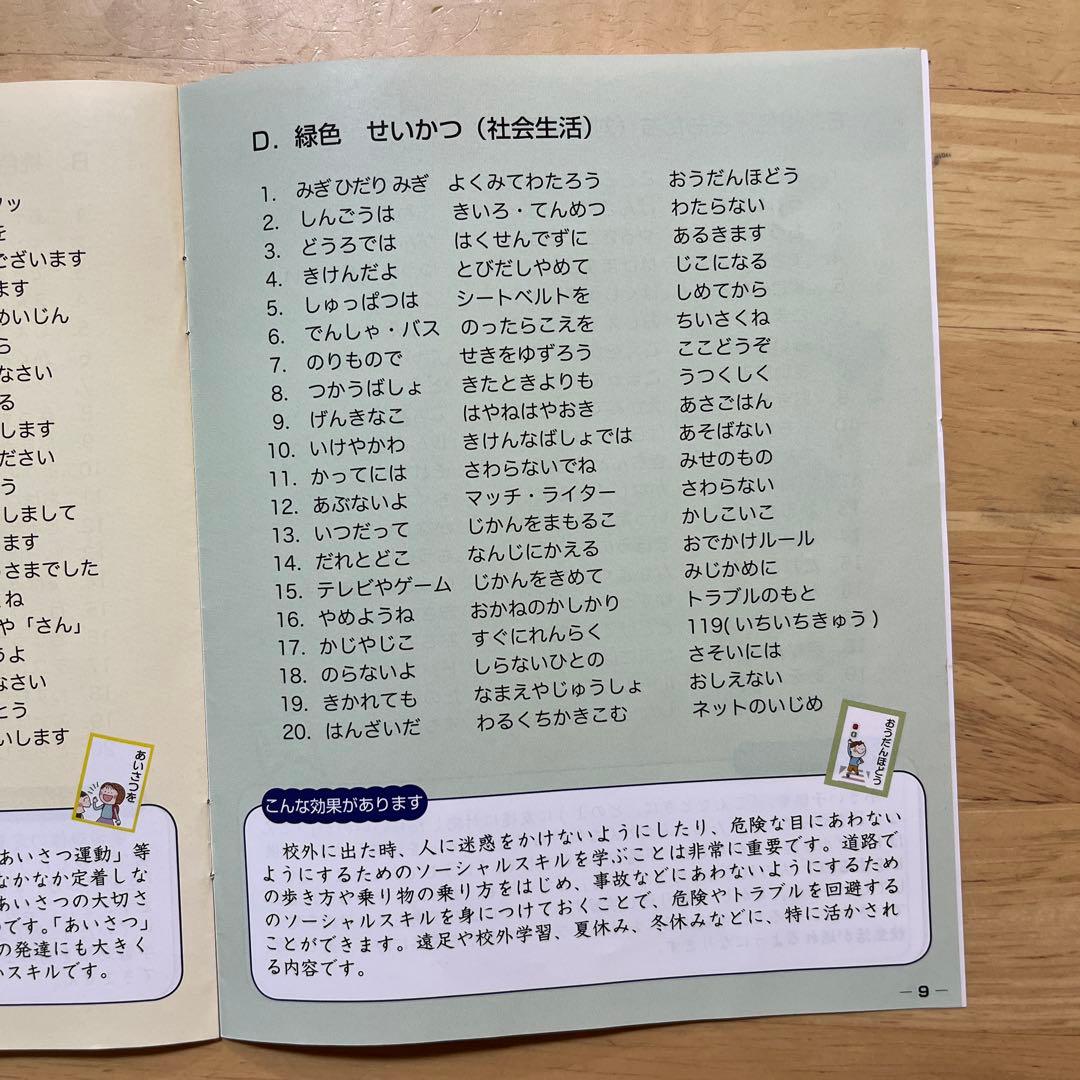 ッ
を
ございます
ます
めいじん
ら
なさい
る
します
ださい
う
しまして
ます
さまでした
ね
や「さん」
うよ
なさい
とう
いします
あいさつを
あいさつ運動」等
なかなか定着しな
あいさつの大切さ
のです。「あいさつ」
の発達にも大きく
いスキルです。
D. 緑色 せいかつ（社会生活）
1. みぎ ひだり みぎ よくみてわたろう おうだんほどう
2. しんごうは きいろ・てんめつ わたらない
3. どうろでは はくせんでずに あるきます
4. きけんだよ とびだしやめて じこになる
5. しゅっぱつは シートベルトを しめてから
6. でんしゃ・バス のったらこえを ちいさくね
7. のりもので せきをゆずろう ここどうぞ
8. つかうばしょ きたときよりも うつくしく
9. げんきなこ はやねはやおき あさごはん
10. いけやかわ きけんなばしょでは あそばない
11. かってには さわらないでね みせのもの
12. あぶないよ マッチ・ライター さわらない
13. いつだって じかんをまもるこ かしこいこ
14. だれとどこ なんじにかえる おでかけルール
15. テレビやゲーム じかんをきめて みじかめに
16. やめようね おかねのかしかり トラブルのもと
17. かじやじこ すぐにれんらく 119(いちいちきゅう)
18. のらないよ しらないひとの さそいには
19. きかれても なまえやじゅうしょ おしえない
20. はんざいだ わるくちかきこむ ネットのいじめ
おうだんほどう
こんな効果があります
校外に出た時、人に迷惑をかけないようにしたり、危険な目にあわない
ようにするためのソーシャルスキルを学ぶことは非常に重要です。道路で
の歩き方や乗り物の乗り方をはじめ、事故などにあわないようにするため
のソーシャルスキルを身につけておくことで、危険やトラブルを回避する
ことができます。遠足や校外学習、夏休み、冬休みなどに、特に活かされ
る内容です。
― 9 ―